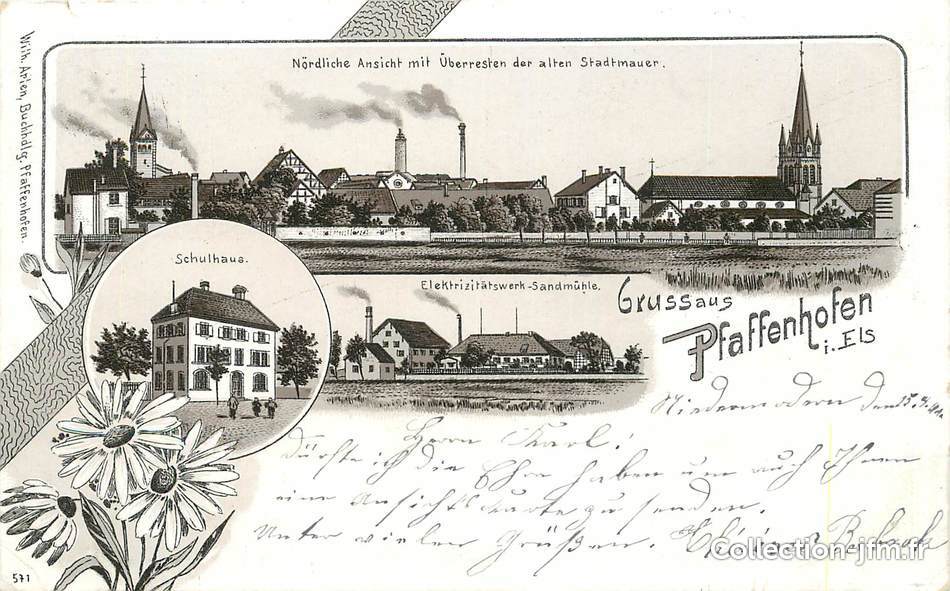 Nördliche Ansicht mit Überresten der alten Stadtmauer.
Wilh. Arlen, Buchhdlg. Pfaffenhofen.
Schulhaus.
Elektrizitätswerk-Sandmühle.
Gruss aus
Pfaffenhofen
i. Els
Niedermodern den 15.
Herrn Karl!
Dürfte ich die Ehre haben um auch Ihnen
eine Ansichtskarte zu senden.
Unter vielen Grüßen.
Collection-jfm.fr
571